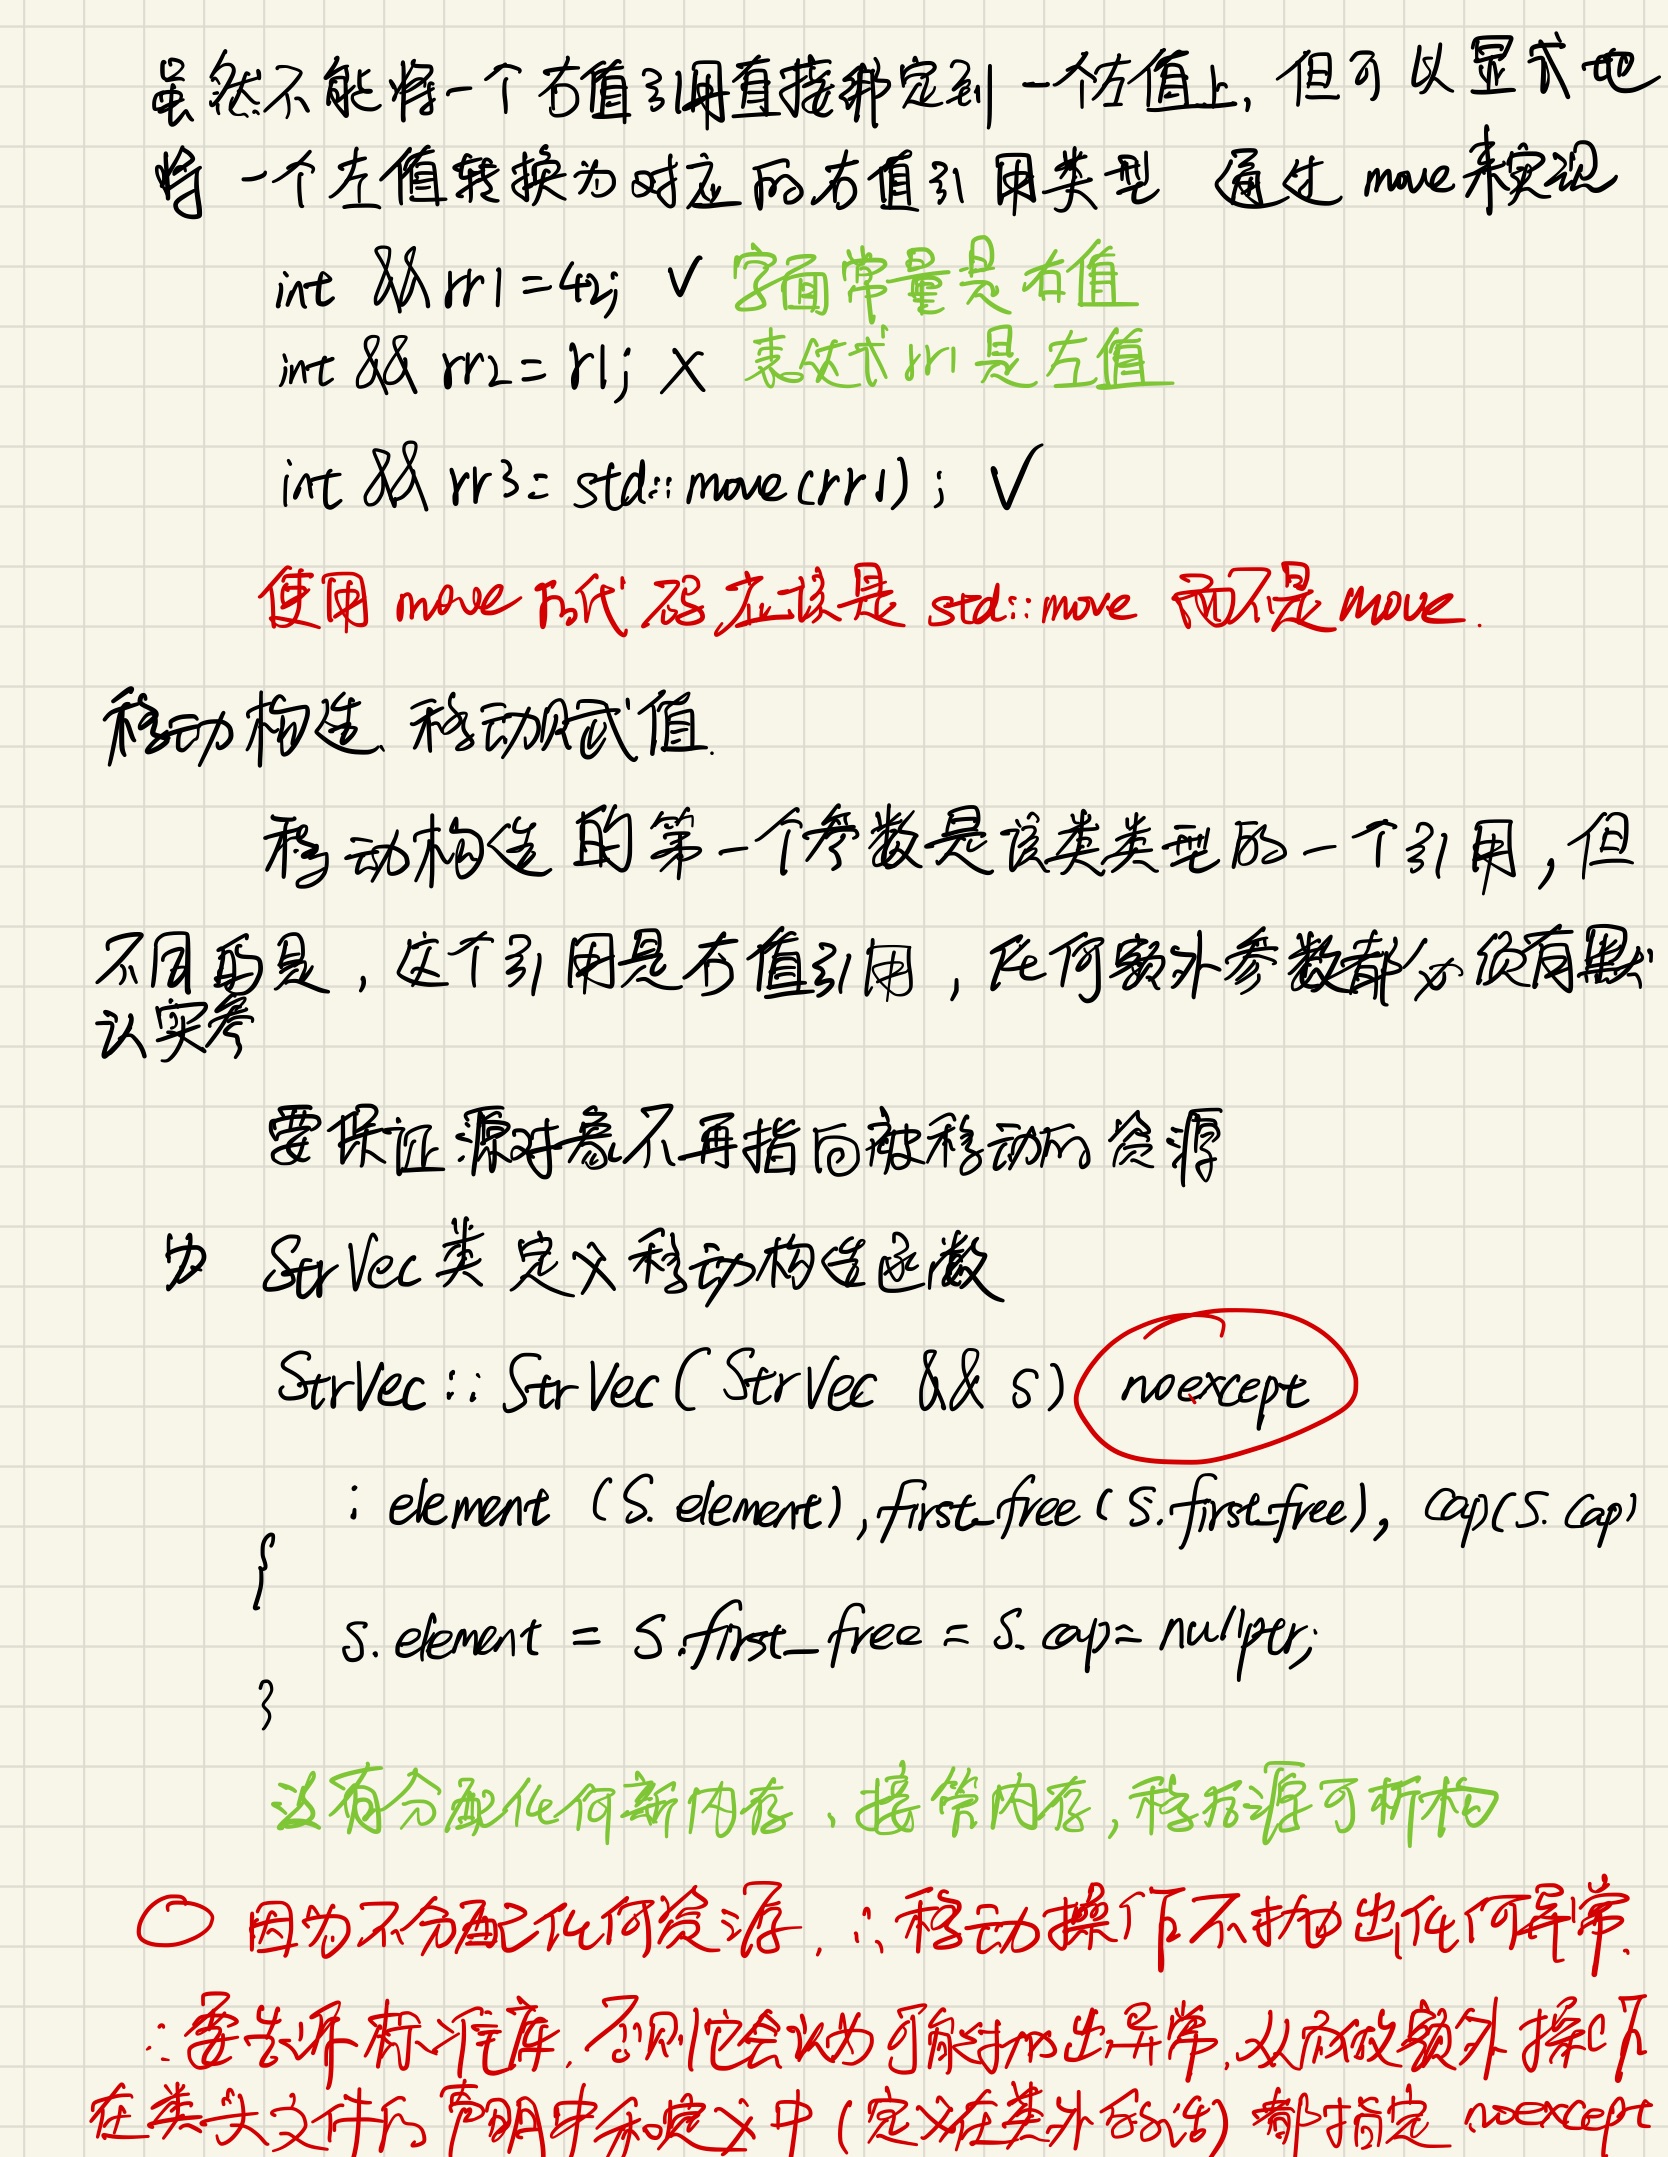 虽然不能将一个右值引用直接绑定到一个左值上，但可以显式地
将一个左值转换为对应的右值引用类型 通过move来实现
int &&rr1=42; ✓ 字面常量是右值
int && rr2=r1; ✗ 表达式rr1是左值
int && rr3=std::move(rr1); ✓
使用move的代码应该是 std::move 而不是move.
移动构造、移动赋值.
移动构造的第一个参数是该类类型的一个引用,但
不同的是,这个引用是右值引用,任何额外参数都必须有默
认实参
要保证源对象不再指向被移动的资源
StrVec类定义移动构造函数
StrVec::StrVec(StrVec && s) noexcept
: element (s.element), first_free(s.first_free), cap(s.cap)
{
s.element = s.first_free = s.cap= nullptr;
}
没有分配任何新内存、接管内存,移后源可析构
因为不分配任何资源.∴移动操作不抛出任何异常.
∴要告诉标准库.否则它会认为可能抛出异常,从而做额外操作
在类头文件的声明中和定义中(定义在类外的话)都指定noexcept